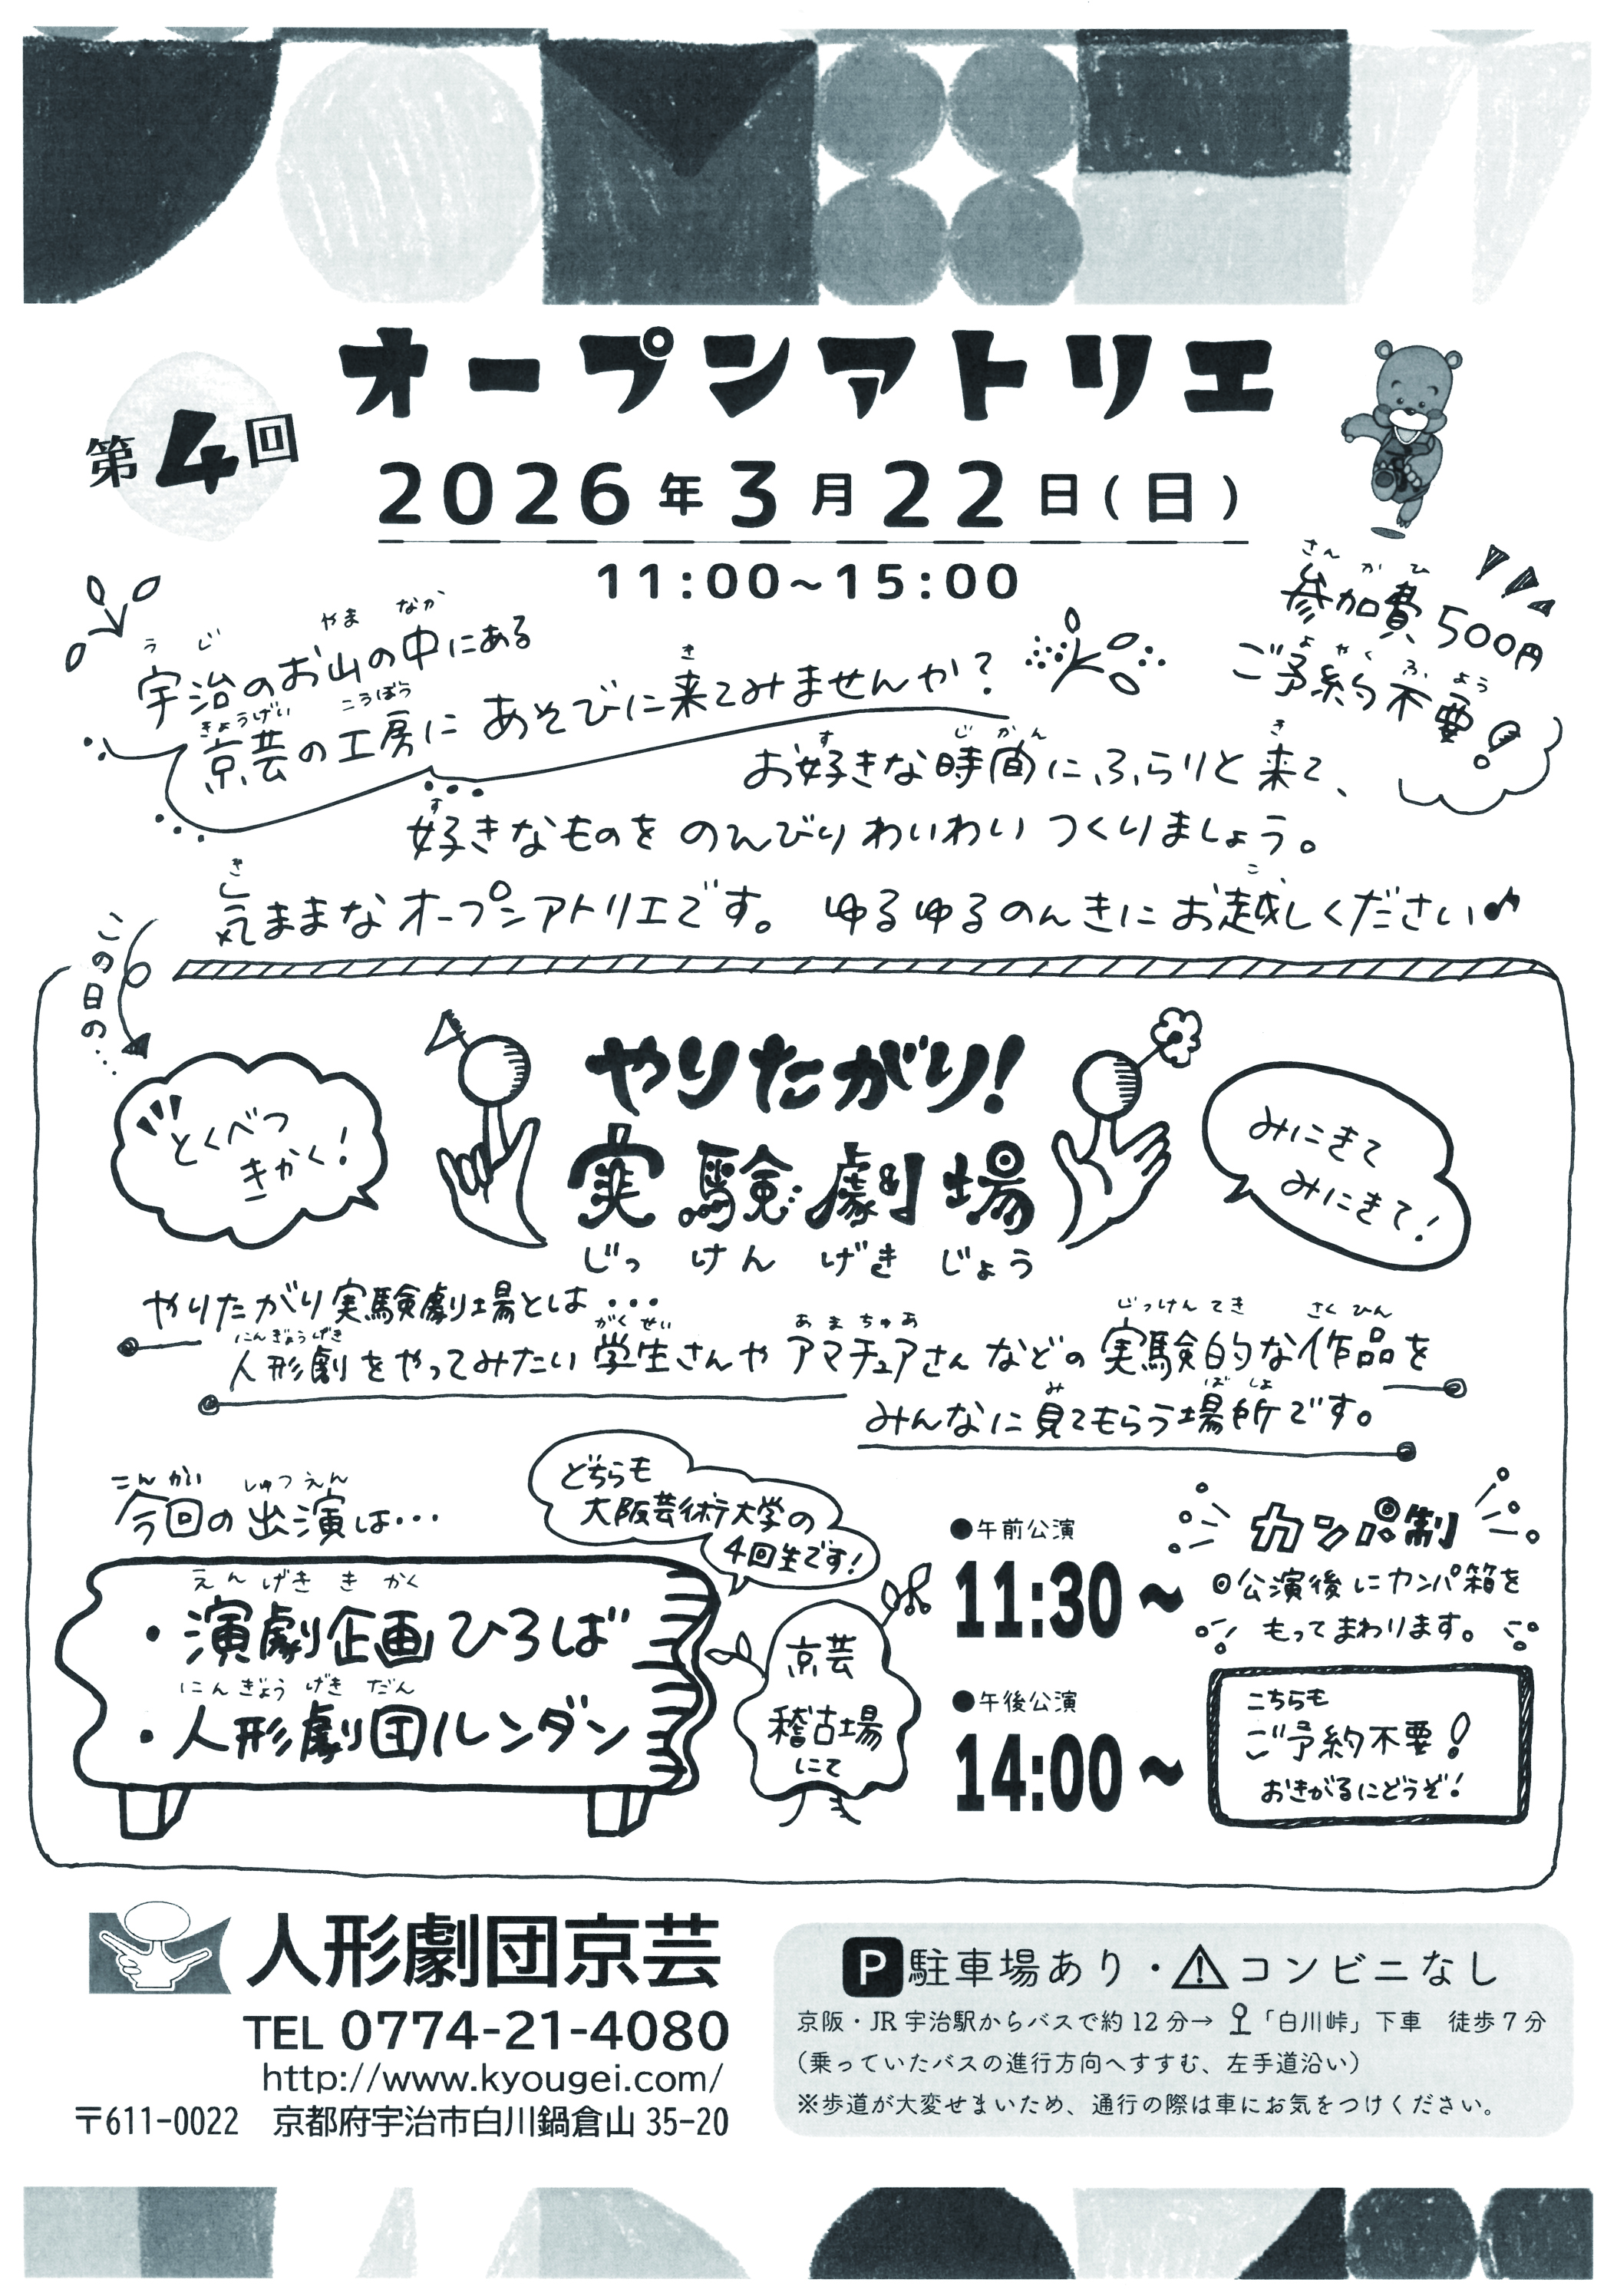 第4回
オープンアトリエ
2026年3月22日(日)
11:00~15:00
参加費500円
さんかひ
ご予約不要!
よやくふよう
宇治のお山の中にある
うじ やま なか
京芸の工房にあそびに来てみませんか?
きょうげい こうぼう き
お好きな時間にふらりと来て、
す じかん き
好きなものをのんびりわいわいつくりましょう。
す
気ままなオープンアトリエです。 ゆるゆるのんきにお越しください♪
き こ
この日の…
とくべつ
きかく!
やりたがり!
実験劇場
じっ けん げき じょう
みにきて
みにきて!
やりたがり実験劇場とは…
人形劇をやってみたい学生さんやアマチュアさんなどの実験的な作品を
にんぎょうげき がくせい あまちゅあ じっけんてき さくひん
みんなに見てもらう場所です。
み ばしょ
今回の出演は…
こんかい しゅつえん
どちらも
大阪芸術大学の
4回生です!
・演劇企画ひろば
えんげき きかく
・人形劇団ルンダン
にんぎょう げき だん
京芸
稽古場
にて
●午前公演
11:30~
●午後公演
14:00~
カンパ制
◎公演後にカンパ箱を
もってまわります。
こちらも
ご予約不要!
おきがるにどうぞ!
人形劇団京芸
TEL 0774-21-4080
http://www.kyougei.com/
〒611-0022 京都府宇治市白川鍋倉山 35-20
P駐車場あり・⚠コンビニなし
京阪・JR宇治駅からバスで約12分→ 「白川峠」下車 徒歩7分
(乗っていたバスの進行方向へすすむ、左手道沿い)
※歩道が大変せまいため、通行の際は車にお気をつけください。